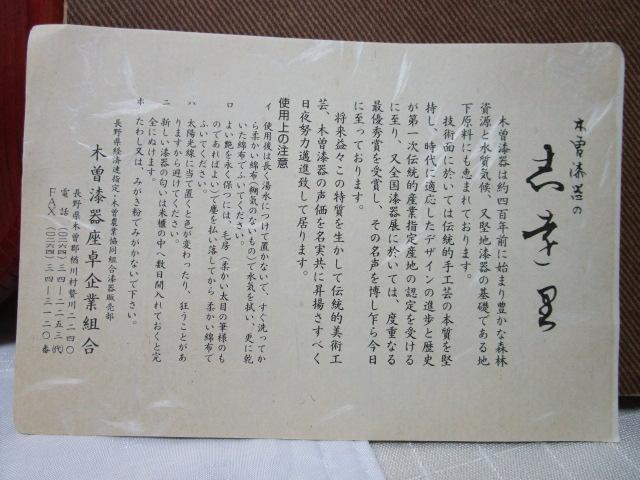 木曽漆器の
志幸里
木曽漆器は約四百年前に始まり豊かな森林
資源と水質気候、又堅地漆器の基礎である地
下原料にも恵まれております。
技術面に於いては伝統的手工芸の本質を堅
持し、時代に適応したデザインの進歩と歴史
が第一次伝統的産業指定産地の認定を受ける
に至り、又全国漆器展に於いては、度重なる
最優秀賞を受賞し、その名声を博し乍ら今日
に至っております。
将来益々この特質を生かして伝統的美術工
芸、木曽漆器の声価を名実共に昇揚さすべく
日夜努力邁進致して居ります。
使用上の注意
イ 使用後は長く湯水につけて置かないで、すぐ洗ってか
ら柔かい綿布(糊気のないもの)で水気を拭い、更に乾
いた綿布でふいてください。
ロ より艶を永く保つには、毛房(柔かい太目の筆様のも
のであればよい)で塵を払い落してから柔かい綿布で
ふいてください。
ハ 太陽光線に当て置くと色が変わったり、狂うことがあ
りますから避けてください。
ニ 新しい漆器の匂いは米櫃の中へ数日間入れておくと完
全にぬけます。
ホ たわし又は、みがき粉でみがかないで下さい。
長野県経済連指定・木曽農業協同組合漆器販売部
木曽漆器座卓企業組合
長野県木曽郡楢川村贄川二二四〇
電話(〇二六四)三四―二二五三(代)
FAX(〇二六四)三四―三一二〇番